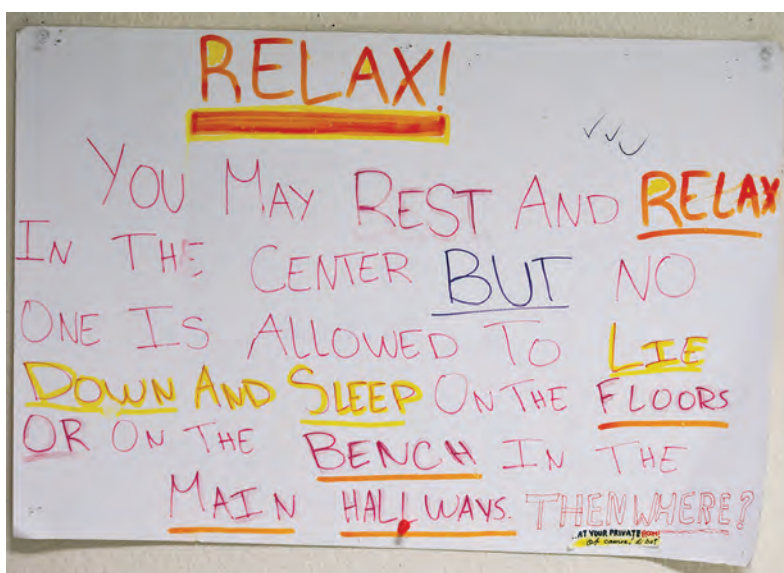 RELAX!
YOU MAY REST AND RELAX
IN THE CENTER BUT NO
ONE IS ALLOWED TO LIE
DOWN AND SLEEP ON THE FLOORS
OR ON THE BENCH IN THE
MAIN HALLWAYS. THEN WHERE?
..AT YOUR PRIVATE ROOM!
Of course! di ba?